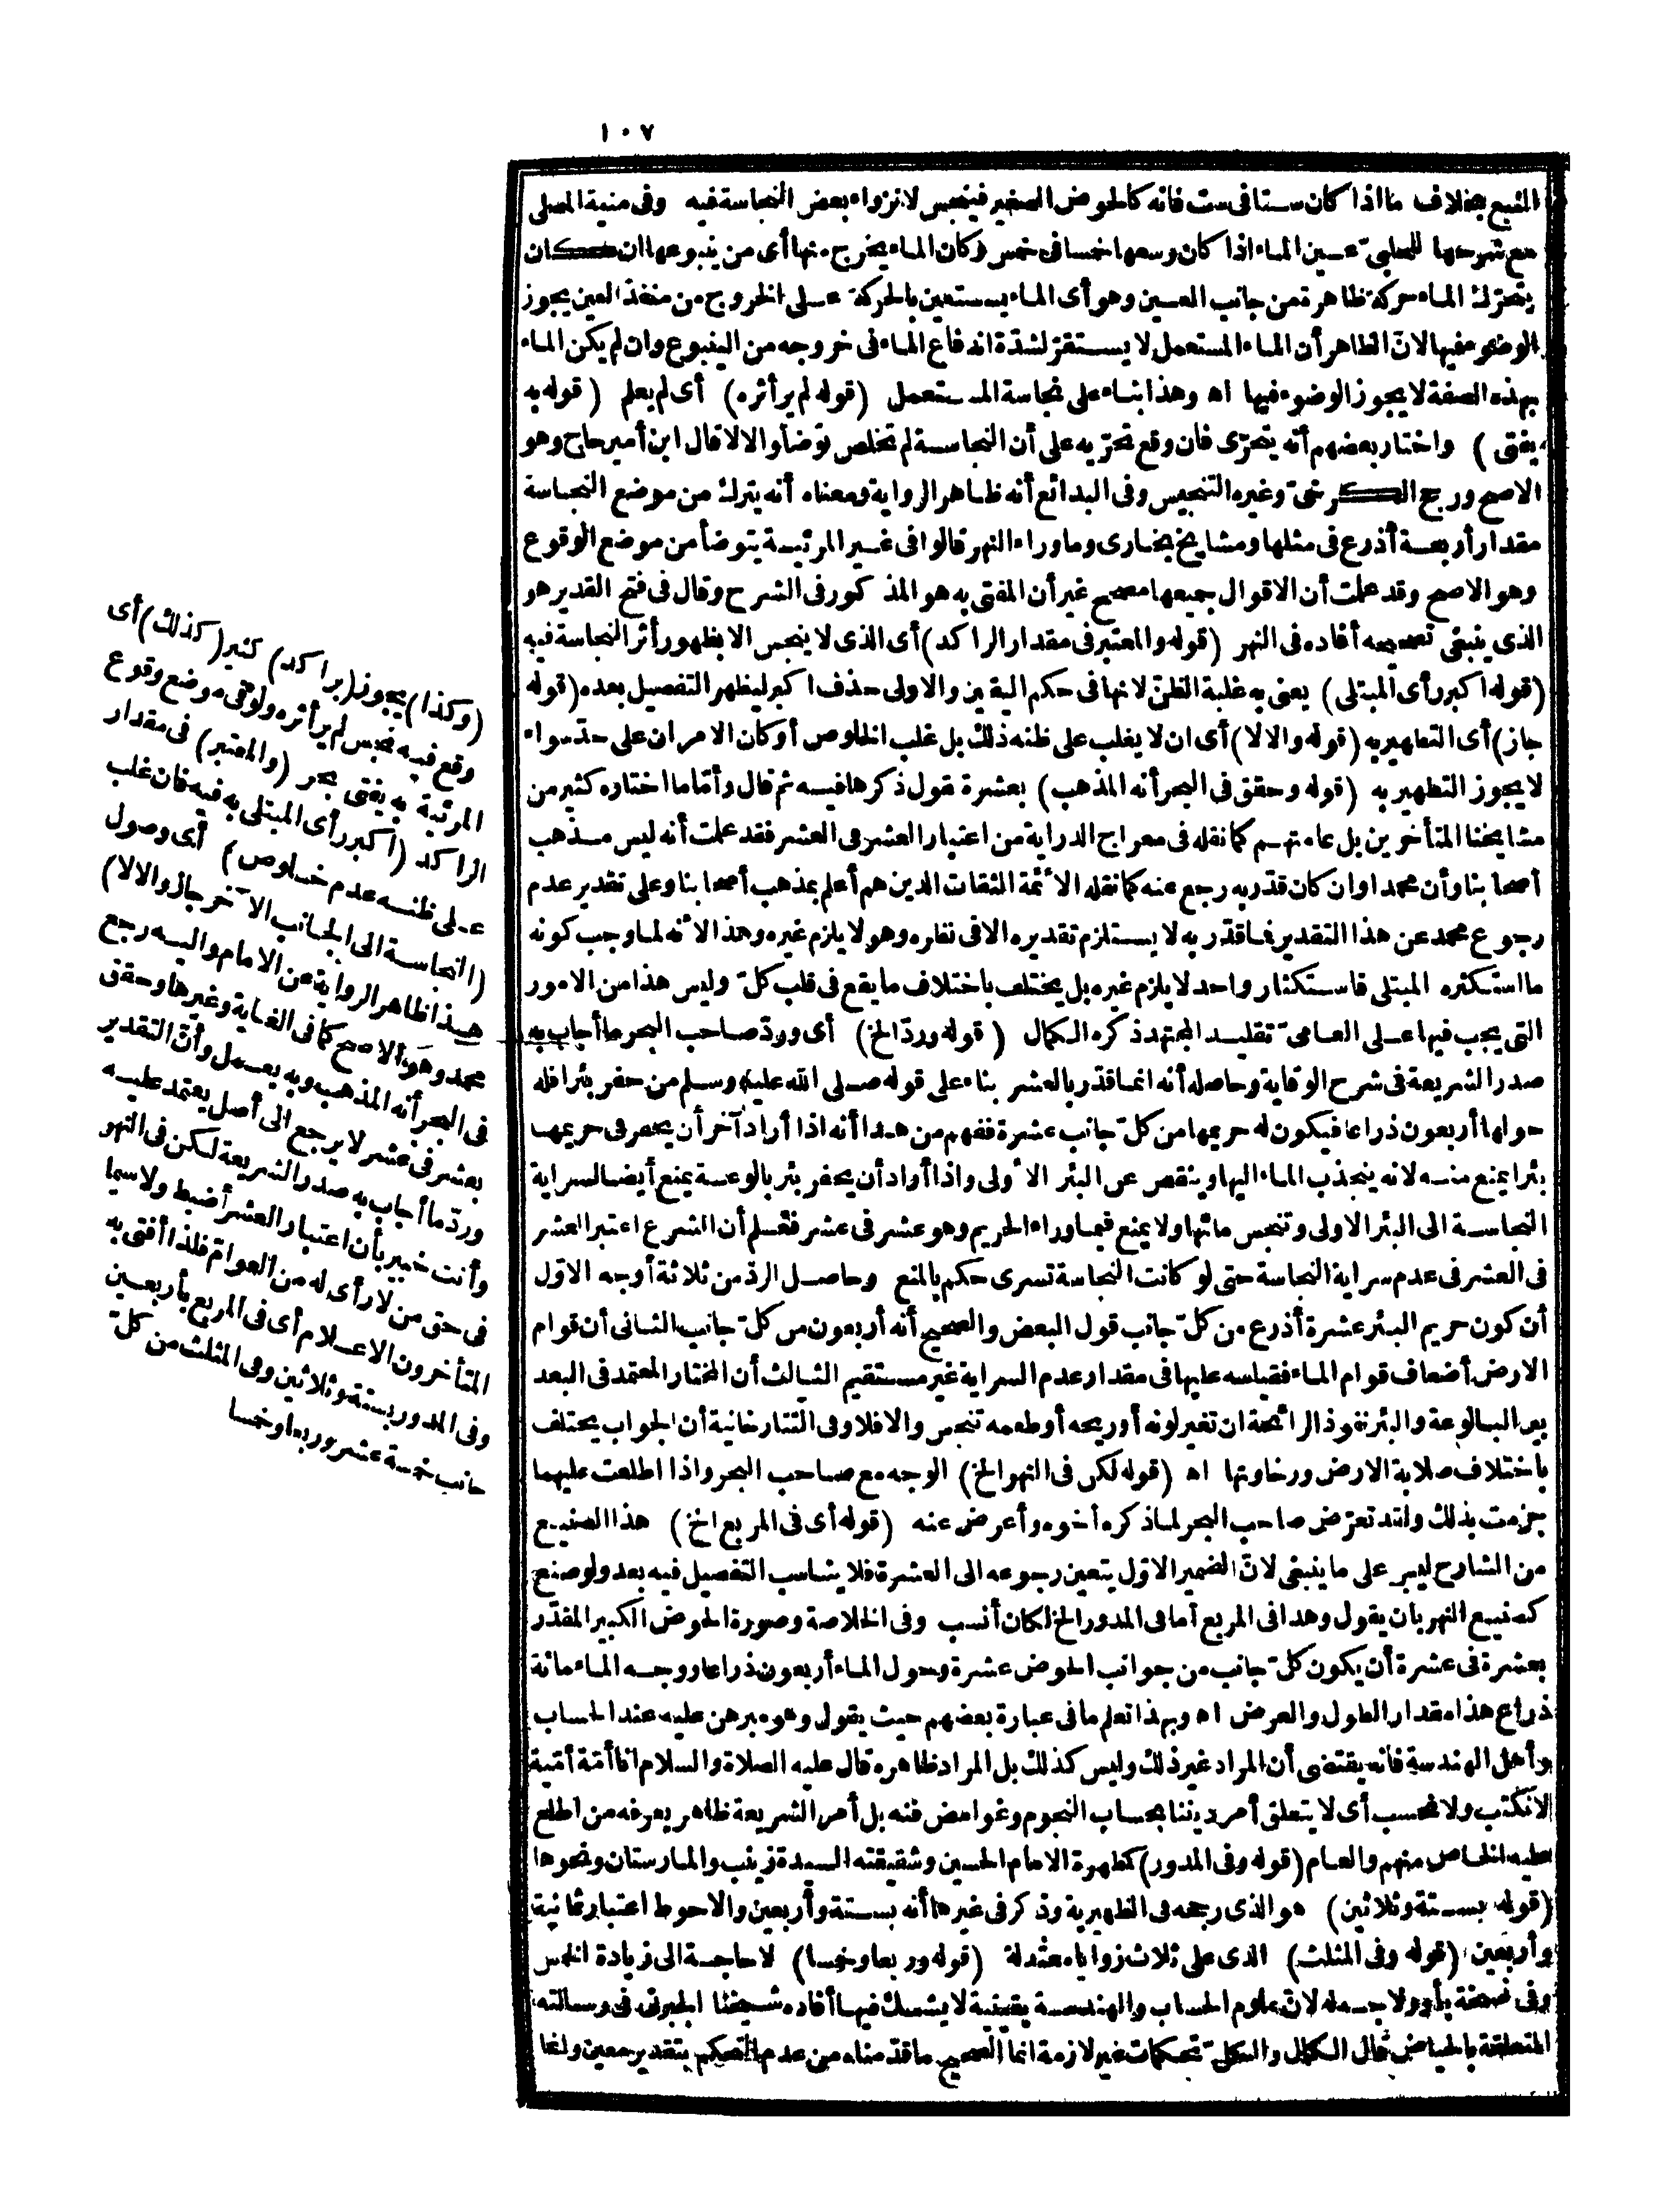 ١٠٧
المنبع بخلاف ما اذا كان ستا فى ست فانه كالحوض الصغير فينجس لانزواء بعض النجاسة فيه وفى منية المصلى
مع شرحها للحلبىّ عسين الماء اذا كان وسعها خمسا فى خمس وكان الماء يخرج منها أى من ينبوعها ان كان
يتحرّك الماء حركة ظاهرة من جانب العسين وهو أى الماء يستعين بالحركة على الخروج من منفذ العين يجوز
الوضوء فيها لانّ الظاهر أن الماء المستعمل لا يستقرّ لشدّة اندفاع الماء فى خروجه من الينبوع وان لم يكن الماء
بهذه الصفة لا يجوز الوضوء فيها اه وهذا بناء على نجاسة المستعمل (قوله لم ير أثره) أى لم يعلم (قوله به
يفتى) واختار بعضهم أنه يتحرّى فان وقع تحرّيه على أن النجاسة لم تخلص توضأ والا لا قال ابن أمير حاج وهو
الاصح ورجح الكرخىّ وغيره التنجيس وفى البدائع أنه ظاهر الرواية ومعناه أنه يترك من موضع النجاسة
مقدار أربعة أذرع فى مثلها ومشايخ بخارى وما وراء النهر قالوا فى غير المرئية يتوضأ من موضع الوقوع
وهو الاصح وقد علمت أن الاقوال جميعها مصحح غير أن المفتى به هو المذكور فى الشرح وقال فى فتح القدير هو
الذى ينبغى تصحيحه أفاده فى النهر (قوله والمعتبر فى مقدار الراكد) أى الذى لا ينجس الا بظهور أثر النجاسة فيه
(قوله اكبر رأى المبتلى) يعنى به غلبة الظنّ لانها فى حكم اليقين والاولى حذف اكبر ليظهر التفصيل بعده (قوله
جاز) أى التطهير به (قوله والا لا) أى ان لا يغلب على ظنه ذلك بل غلب الخلوص أو كان الامران على حدّ سواء
لا يجوز التطهير به (قوله وحقق فى البحر أنه المذهب) بعشرة نقول ذكرها فيه ثم قال وأمّا ما اختاره كثير من
مشايخنا المتأخرين بل عامتهم كما نقله فى معراج الدراية من اعتبار العشر فى العشر فقد علمت أنه ليس مذهب
أصحابنا وأن محمدا وان كان قدّر به رجع عنه كما نقله الائمة الثقات الدين هم أعلم بمذهب أصحابنا وعلى تقدير عدم
رجوع محمد عن هذا التقدير فما قدّر به لا يستلزم تقديره الا فى نظره وهو لا يلزم غيره وهذا لانه لما وجب كونه
ما استكثره المبتلى فاستكثار واحد لا يلزم غيره بل يختلف باختلاف ما يقع فى قلب كلّ وليس هذا من الامور
التى يجب فيها على العامىّ تقليد المجتهد ذكره الكمال (قوله وردّ الخ) أى وردّ صاحب البحر ما أجاب به
صدر الشريعة فى شرح الوقاية وحاصله أنه انما قدّر بالعشر بناء على قوله صلى الله عليه وسلم من حفر بئرا فله
حولها أربعون ذراعا فيكون له حريمها من كلّ جانب عشرة ففهم من هذا أنه اذا أراد آخر أن يحفر فى حريمها
بئرا يمنع منه لانه ينجذب الماء اليها وينقص عن البئر الاولى واذا أراد أن يحفر بئر بالوعة يمنع أيضا لسراية
النجاسة الى البئر الاولى وتنجس مائها ولا يمنع فيما وراء الحريم وهو عشر فى عشر فعلم أن الشرع اعتبر العشر
فى العشر فى عدم سراية النجاسة حتى لو كانت النجاسة تسرى حكم بالمنع وحاصل الردّ من ثلاثة أوجه الاوّل
أن كون حريم البئر عشرة أذرع من كلّ جانب قول البعض والصحيح أنه أربعون من كلّ جانب الثانى أن قوام
الارض أضعاف قوام الماء فقياسه عليها فى مقدار عدم السراية غير مستقيم الثالث أن المختار المعتمد فى البعد
بين البالوعة والبئر نفوذ الرائحة ان تغير لونه أو ريحه أو طعمه تنجس والا فلا وفى التتارخانية أن الجواب يختلف
باختلاف صلابة الارض ورخاوتها اه (قوله لكن فى النهر الخ) الوجه مع صاحب البحر واذا اطلعت عليهما
جزمت بذلك ولقد تعرّض صاحب البحر لما ذكره أخوه وأعرض عنه (قوله أى فى المربع الخ) هذا الصنيع
من الشارح ليس على ما ينبغى لانّ الضمير الاوّل يتعين رجوعه الى العشرة فلا يناسب التفصيل فيه بعد ولو صنع
كصنيع النهر بان يقول وهذا فى المربع أما فى المدور الخ لكان أنسب وفى الخلاصة وصورة الحوض الكبير المقدّر
بعشرة فى عشرة أن يكون كلّ جانب من جوانب الحوض عشرة وحول الماء أربعون ذراعا ووجه الماء مائة
ذراع هذا مقدار الطول والعرض اه وبهذا تعلم ما فى عبارة بعضهم حيث يقول وهو مبرهن عليه عند الحساب
وأهل الهندسة فانه يقتضى أن المراد غير ذلك وليس كذلك بل المراد ظاهره قال عليه الصلاة والسلام انا أمّة أمّية
لا نكتب ولا نحسب أى لا يتعلق أمر ديننا بحساب النجوم وغوامض فنه بل أمر الشريعة ظاهر يعرفه من اطلع
عليه الخاص منهم والعام (قوله وفى المدور) كطهرة الامام الحسين وشقيقته السيدة زينب والمارستان ونحوها
(قوله بستة وثلاثين) هو الذى رجحه فى الظهيرية وذكر فى غيرها أنه بستة وأربعين والاحوط اعتبار ثمانية
وأربعين (قوله وفى المثلث) الذى على ثلاث زوايا معتدلة (قوله وربعا وخمسا) لا حاجة الى زيادة الخمس
وفى نسخة بأو ولا وجه له لانّ علوم الحساب والهندسة يقينية لا يشك فيها أفاده شيخنا الجبرتى فى رسالته
المتعلقة بالحياض قال الكمال والكلّ تحكمات غير لازمة انما الصحيح ما قدّمناه من عدم التحكم بتقدير معين وانما
(وكذا) يجوز (براكد) كثير (كذلك) أى
وقع فيه نجس لم ير أثره ولو فى موضع وقوع
المرئية به يفتى بحر (والمعتبر) فى مقدار
الراكد (اكبر رأى المبتلى به فيه فان غلب
على ظنه عدم خلوص) أى وصول
(النجاسة الى الجانب الآخر جاز والا لا)
هذا ظاهر الرواية عن الامام واليه رجع
محمد وهو الاصح كما فى الغاية وغيرها وحقق
فى البحر أنه المذهب وبه يعمل وأنّ التقدير
بعشر فى عشر لا يرجع الى أصل يعتمد عليه
وردّ ما أجاب به صدر الشريعة لكن فى النهر
وأنت خبير بأن اعتبار العشر أضبط ولا سيما
فى حق من لا رأى له من العوامّ فلذا أفتى به
المتأخرون الاعلام أى فى المربع بأربعين
وفى المدور بستة وثلاثين وفى المثلث من كلّ
جانب خمسة عشر وربعا وخمسا